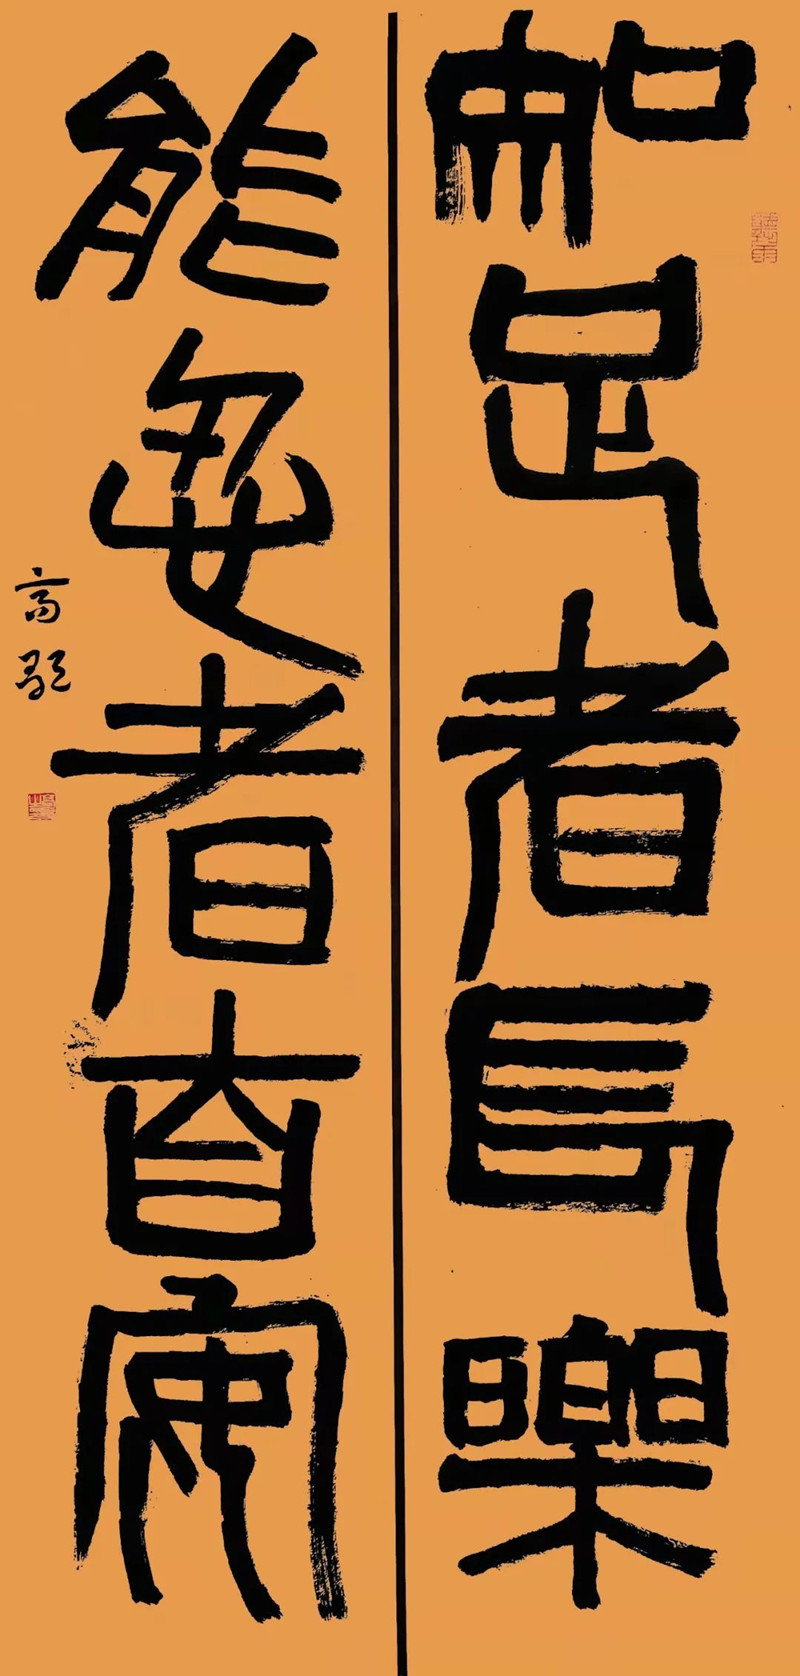 知足者長樂
能忍者自安
高